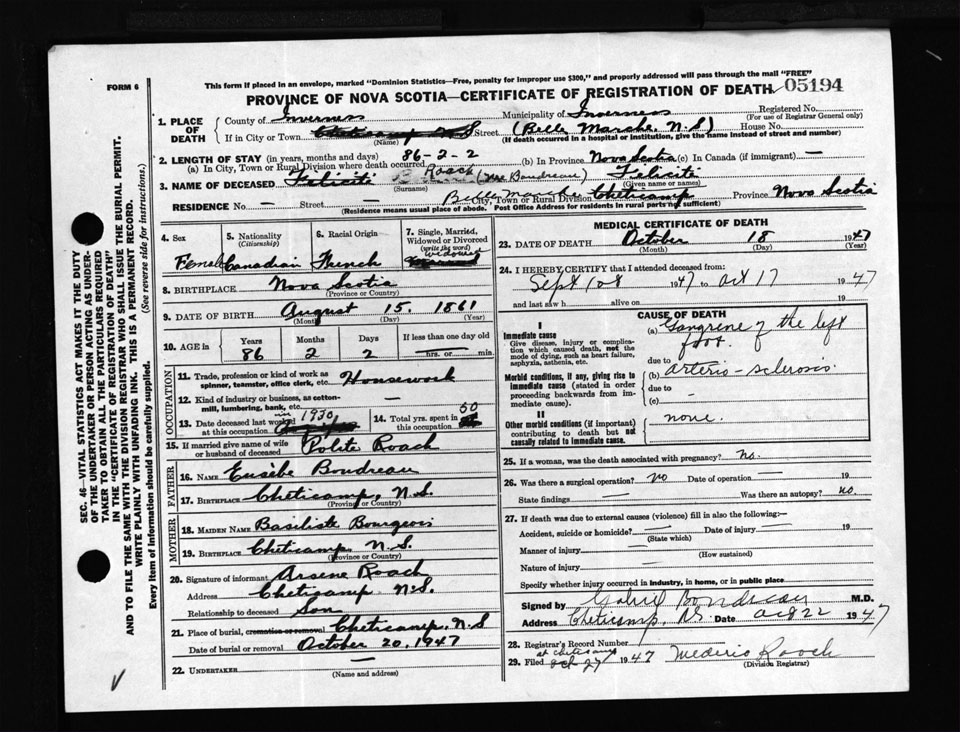 FORM 6
This form if placed in an envelope, marked "Dominion Statistics—Free, penalty for improper use $300," and properly addressed will pass through the mail "FREE"
PROVINCE OF NOVA SCOTIA—CERTIFICATE OF REGISTRATION OF DEATH 05194
1. PLACE OF DEATH
County of Inverness Municipality of Inverness Registered No.
(For use of Registrar General only)
If in City or Town Cheticamp N S Street (Belle Marche, N.S) House No.
(Name) (If death occurred in a hospital or institution, give the name instead of street and number)
2. LENGTH OF STAY (in years, months and days) 86-2-2
(a) In City, Town or Rural Division where death occurred (b) In Province Nova Scotia (c) In Canada (if immigrant) —
3. NAME OF DECEASED Feliciti Roach (née Boudreau) Feliciti
(Surname) (Given name or names)
RESIDENCE No. — Street — Belle Marche City, Town or Rural Division Cheticamp Province Nova Scotia
(Residence means usual place of abode. Post Office Address for residents in rural parts not sufficient)
4. Sex Female
5. Nationality (Citizenship) Canadian
6. Racial Origin French
7. Single, Married, Widowed or Divorced (write the word) widowed
8. BIRTHPLACE Nova Scotia
(Province or Country)
9. DATE OF BIRTH August 15. 1861
(Month) (Day) (Year)
10. AGE in Years Months Days If less than one day
86 2 2 — hrs. or — min.
OCCUPATION
11. Trade, profession or kind of work as spinner, teamster, office clerk, etc. Housework
12. Kind of industry or business, as cotton-mill, lumbering, bank, etc. —
13. Date deceased last worked at this occupation 1930
14. Total yrs. spent in this occupation 50
15. If married give name of wife or husband of deceased Polite Roach
FATHER
16. NAME Eusèbe Boudreau
17. BIRTHPLACE Cheticamp, N.S.
(Province or Country)
MOTHER
18. MAIDEN NAME Basiliste Bourgeois
19. BIRTHPLACE Cheticamp N.S.
(Province or Country)
20. Signature of informant Arsene Roach
Address Cheticamp N.S.
Relationship to deceased Son
21. Place of burial, cremation or removal Cheticamp, N.S
Date of burial or removal October 20, 1947
22. UNDERTAKER —
(Name and address)
MEDICAL CERTIFICATE OF DEATH
23. DATE OF DEATH October 18 1947
(Month) (Day) (Year)
24. I HEREBY CERTIFY that I attended deceased from:
Sept 1947 to Oct 17 1947
and last saw h alive on 19
CAUSE OF DEATH
I
Immediate cause
Give disease, injury or complication which caused death, not the mode of dying, such as heart failure, asphyxia, asthenia, etc.
(a) Gangrene of the left foot.
due to
Morbid conditions, if any, giving rise to immediate cause (stated in order proceeding backwards from immediate cause).
(b) arterio-sclerosis.
due to —
(c) —
II
Other morbid conditions (if important) contributing to death but not causally related to immediate cause.
none.
25. If a woman, was the death associated with pregnancy? no.
26. Was there a surgical operation? no Date of operation — 19
State findings — Was there an autopsy? no.
27. If death was due to external causes (violence) fill in also the following:—
Accident, suicide or homicide? — Date of injury — 19
(State which)
Manner of injury —
(How sustained)
Nature of injury —
Specify whether injury occurred in industry, in home, or in public place
Signed by Gabriel Boudreau M.D.
Address Cheticamp, N.S. Date Oct 22 1947
28. Registrar's Record Number
at Cheticamp
29. Filed Oct 27 1947 Mederic Roach
(Division Registrar)
SEC. 46—VITAL STATISTICS ACT MAKES IT THE DUTY
OF THE UNDERTAKER OR PERSON ACTING AS UNDER-
TAKER TO OBTAIN ALL THE PARTICULARS REQUIRED
IN THE "CERTIFICATE OF REGISTRATION OF DEATH"
AND TO FILE THE SAME WITH THE DIVISION REGISTRAR WHO SHALL ISSUE THE BURIAL PERMIT.
WRITE PLAINLY WITH UNFADING INK. THIS IS A PERMANENT RECORD.
Every item of Information should be carefully supplied. (See reverse side for instructions.)